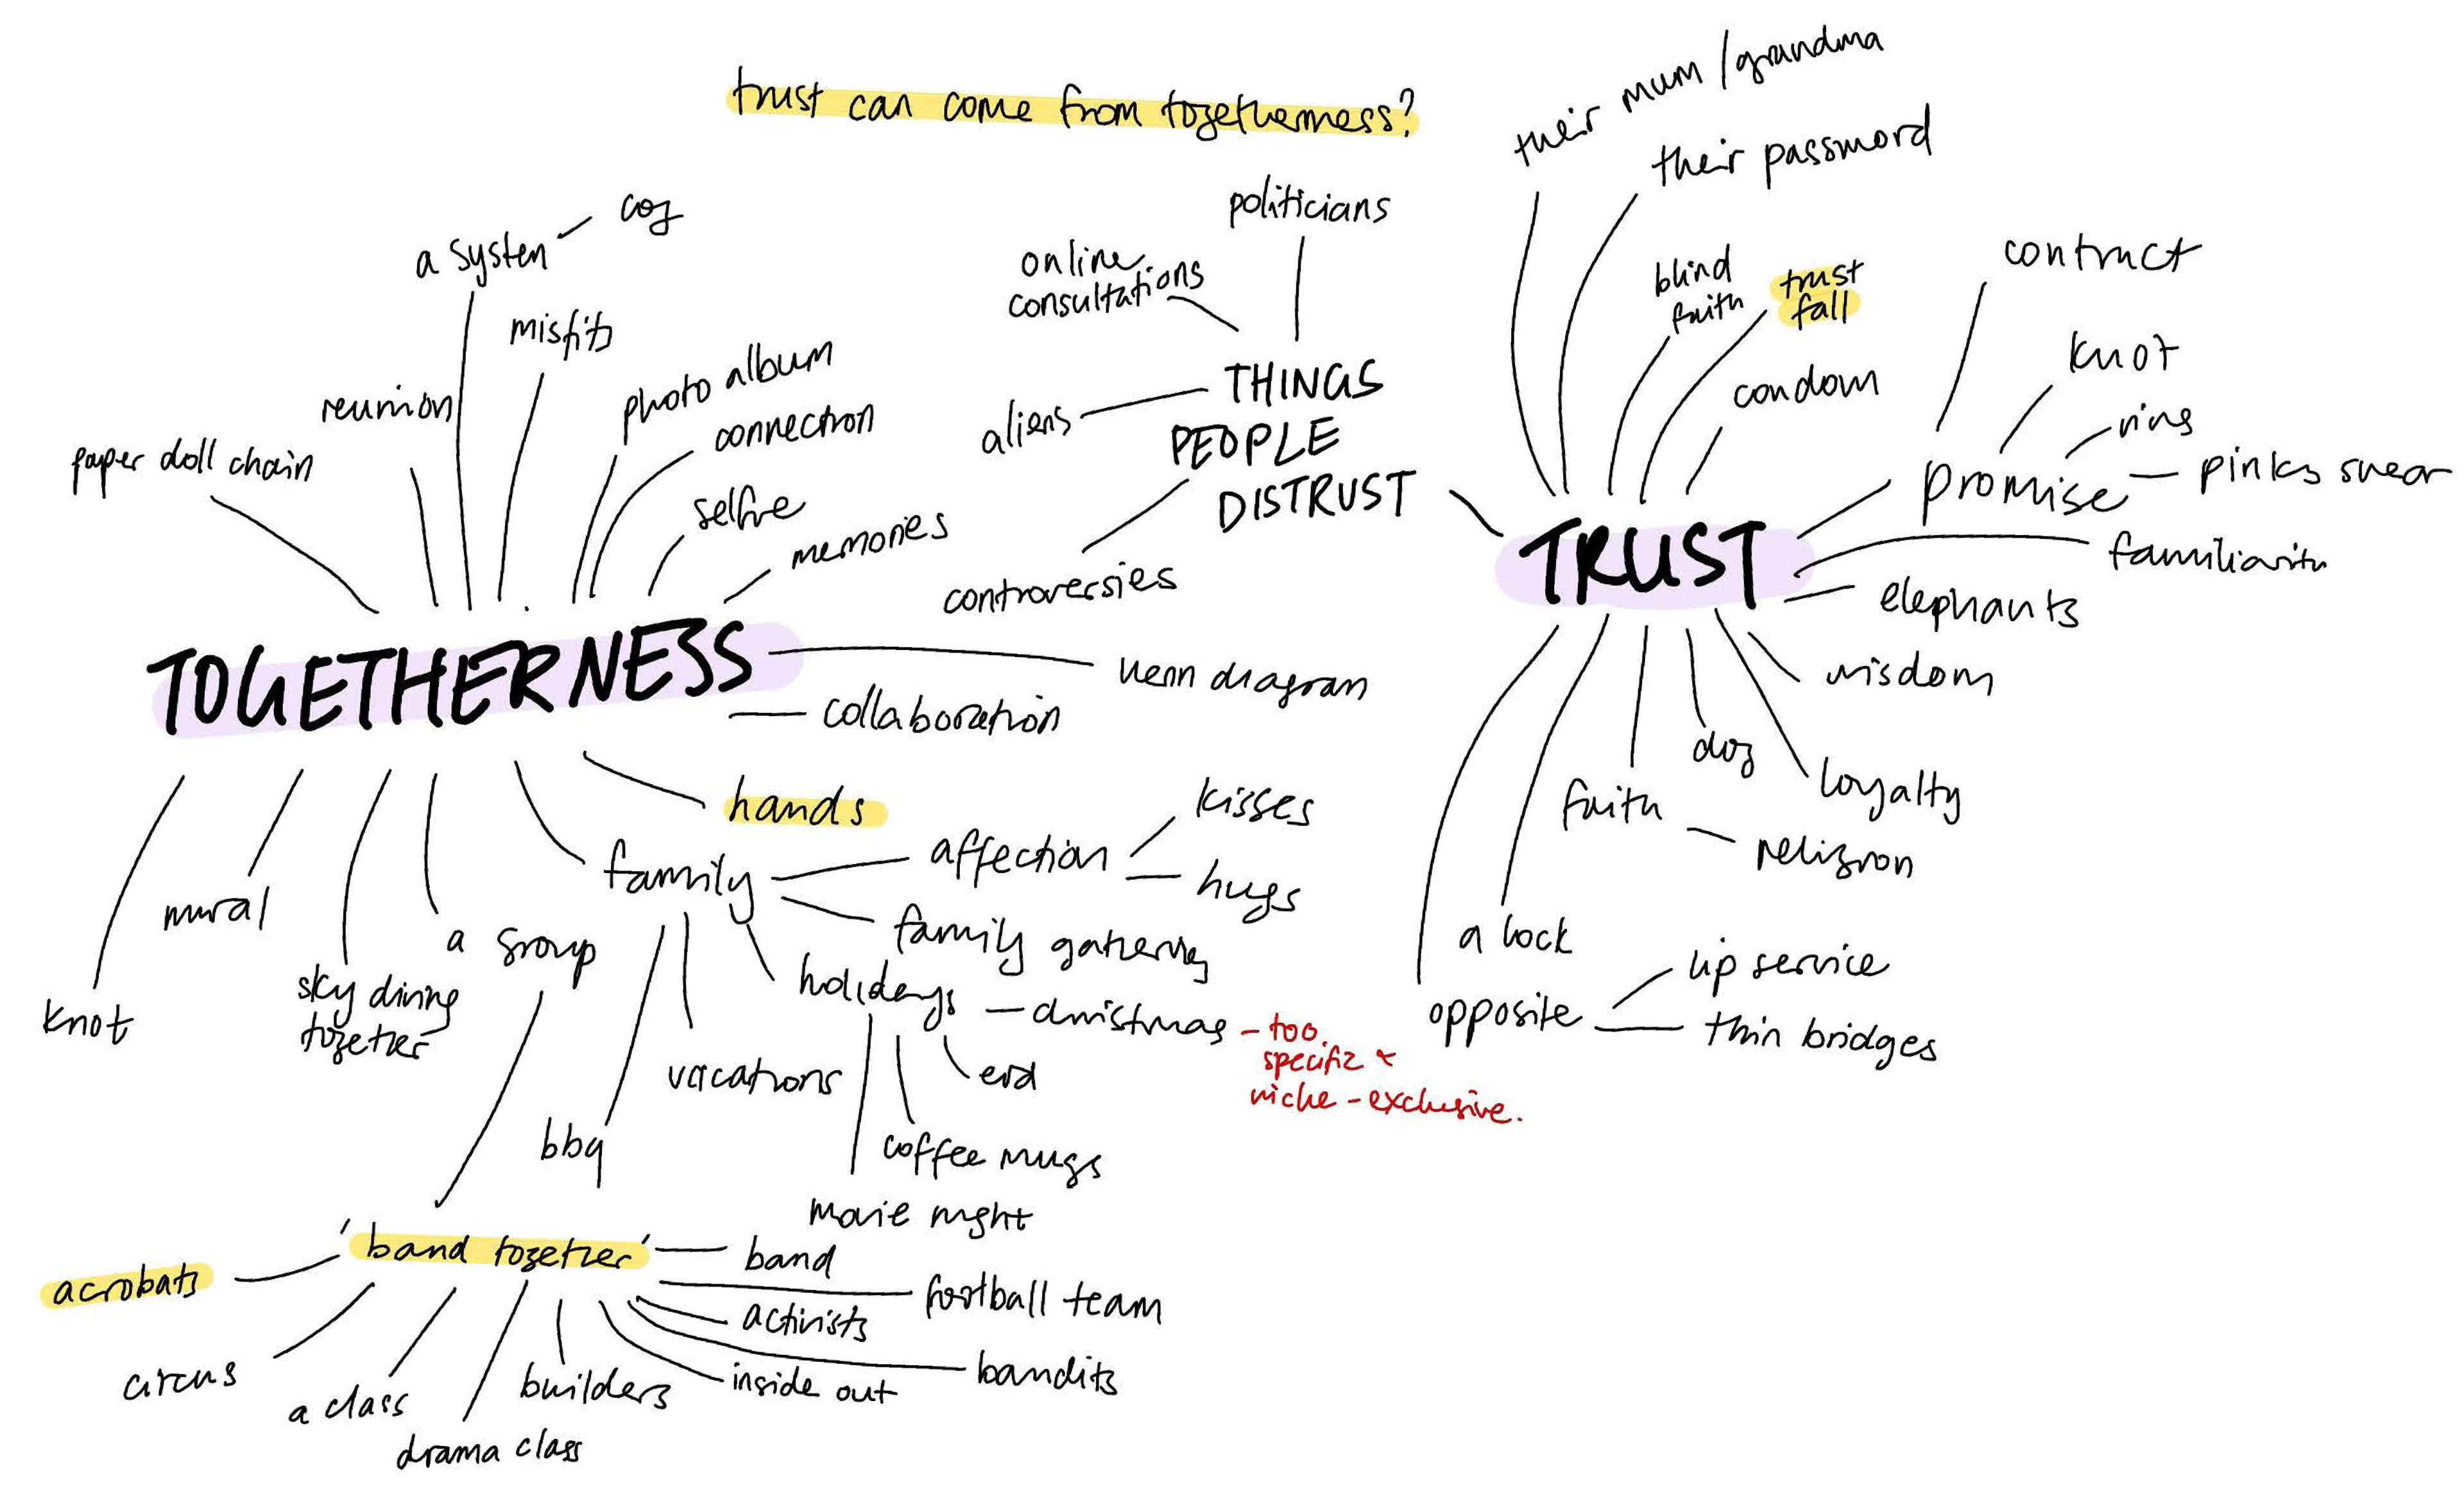 trust can come from togetherness?
their mum / grandma
their password
politicians
online
consultations
aliens
THINGS
PEOPLE
DISTRUST
controversies
blind
faith
trust
fall
condom
contract
knot
ring
promise
pinky swear
familiarity
TRUST
elephants
wisdom
loyalty
dog
faith
religion
a lock
opposite
lip service
thin bridges
cog
a system
misfits
reunion
photo album
paper doll chain
connection
selfie
memories
TOGETHERNESS
venn diagram
collaboration
hands
family
affection
kisses
hugs
family gathering
holidays
christmas
- too
specific &
niche - exclusive.
eid
coffee mugs
movie night
vacations
bbq
knot
mural
sky diving
together
a group
'band together'
acrobats
circus
a class
drama class
builders
inside out
activists
bandits
football team
band